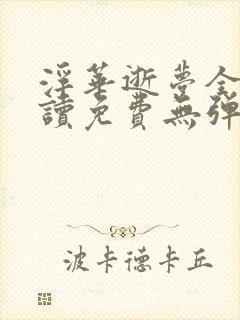 淫華逝夢全
讀免費無彈
波卡德卡丘